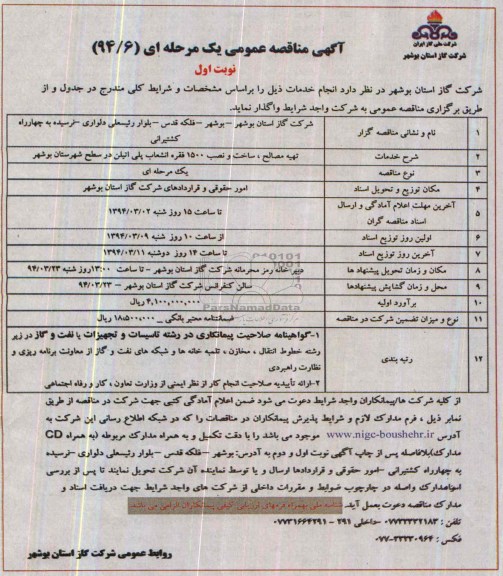 شرکت ملی گاز ایران
شرکت گاز استان بوشهر
آگهی مناقصه عمومی یک مرحله ای (۹۴/۶)
نوبت اول
شرکت گاز استان بوشهر در نظر دارد انجام خدمات ذیل را براساس مشخصات و شرایط کلی مندرج در جدول و از
طریق برگزاری مناقصه عمومی به شرکت واجد شرایط واگذار نماید.
۱ نام و نشانی مناقصه گزار شرکت گاز استان بوشهر – بوشهر – فلکه قدس – بلوار رئیسعلی دلواری – نرسیده به چهارراه
کشتیرانی
۲ شرح خدمات تهیه مصالح ، ساخت و نصب ۱۵۰۰ فقره انشعاب پلی اتیلن در سطح شهرستان بوشهر
۳ نوع مناقصه یک مرحله ای
۴ مکان توزیع و تحویل اسناد امور حقوقی و قراردادهای شرکت گاز استان بوشهر
۵ آخرین مهلت اعلام آمادگی و ارسال
اسناد مناقصه گران تا ساعت ۱۵ روز شنبه ۱۳۹۴/۰۳/۰۲
۶ اولین روز توزیع اسناد از ساعت ۱۰ روز شنبه ۱۳۹۴/۰۳/۰۹
۷ آخرین روز توزیع اسناد تا ساعت ۱۴ روز دوشنبه ۱۳۹۴/۰۳/۱۱
۸ مکان و زمان تحویل پیشنهاد ها دبیرخانه رمز محرمانه شرکت گاز استان بوشهر – تا ساعت ۱۳:۰۰ روز شنبه ۹۴/۰۳/۲۳
۹ محل و زمان گشایش پیشنهادها سالن کنفرانس شرکت گاز استان بوشهر – ۹۴/۰۳/۲۳
۱۰ برآورد اولیه ۴,۱۰۰,۰۰۰,۰۰۰ ریال
۱۱ نوع و میزان تضمین شرکت در مناقصه ضمانتنامه معتبر بانکی ـ ۱۸۵۰۰۰۰۰۰ ریال
۱۲ رتبه بندی ۱-گواهینامه صلاحیت پیمانکاری در رشته تاسیسات و تجهیزات یا نفت و گاز در زیر
رشته خطوط انتقال ، مخازن ، تلمبه خانه ها و شبکه های نفت و گاز از معاونت برنامه ریزی و
نظارت راهبردی
۲-ارائه تأییدیه صلاحیت انجام کار از نظر ایمنی از وزارت تعاون ، کار و رفاه اجتماعی
از کلیه شرکت ها/پیمانکاران واجد شرایط دعوت می شود ضمن اعلام آمادگی کتبی جهت شرکت در مناقصه از طریق
نمابر ذیل ، فرم مدارک لازم و شرایط پذیرش پیمانکاران در مناقصات را که در شبکه اطلاع رسانی این شرکت به
آدرس www.nigc-boushehr.ir موجود می باشد را با دقت تکمیل و به همراه مدارک مربوطه (به همراه CD
مدارک)بلافاصله پس از چاپ آگهی نوبت اول و دوم به آدرس: بوشهر –فلکه قدس – بلوار رئیسعلی دلواری –نرسیده
به چهارراه کشتیرانی –امور حقوقی و قراردادها ارسال و یا توسط نماینده آن شرکت تحویل نمایند تا پس از بررسی
اسنادمدارک واصله در چارچوب ضوابط و مقررات داخلی از شرکت های واجد شرایط جهت دریافت اسناد و
مدارک مناقصه دعوت بعمل آید. شناسه ملی بهمراه فرمهای ارزیابی کیفی پیمانکاران الزامی می باشد
تلفن : ۰۷۷۳۳۳۲۱۸۳ –داخلی ۲۹۱ - ۰۷۷۳۱۶۶۴۲۹۱
فکس : ۳۳۳۳۰۹۶۴-۰۷۷
روابط عمومی شرکت گاز استان بوشهر
ParsNamadData